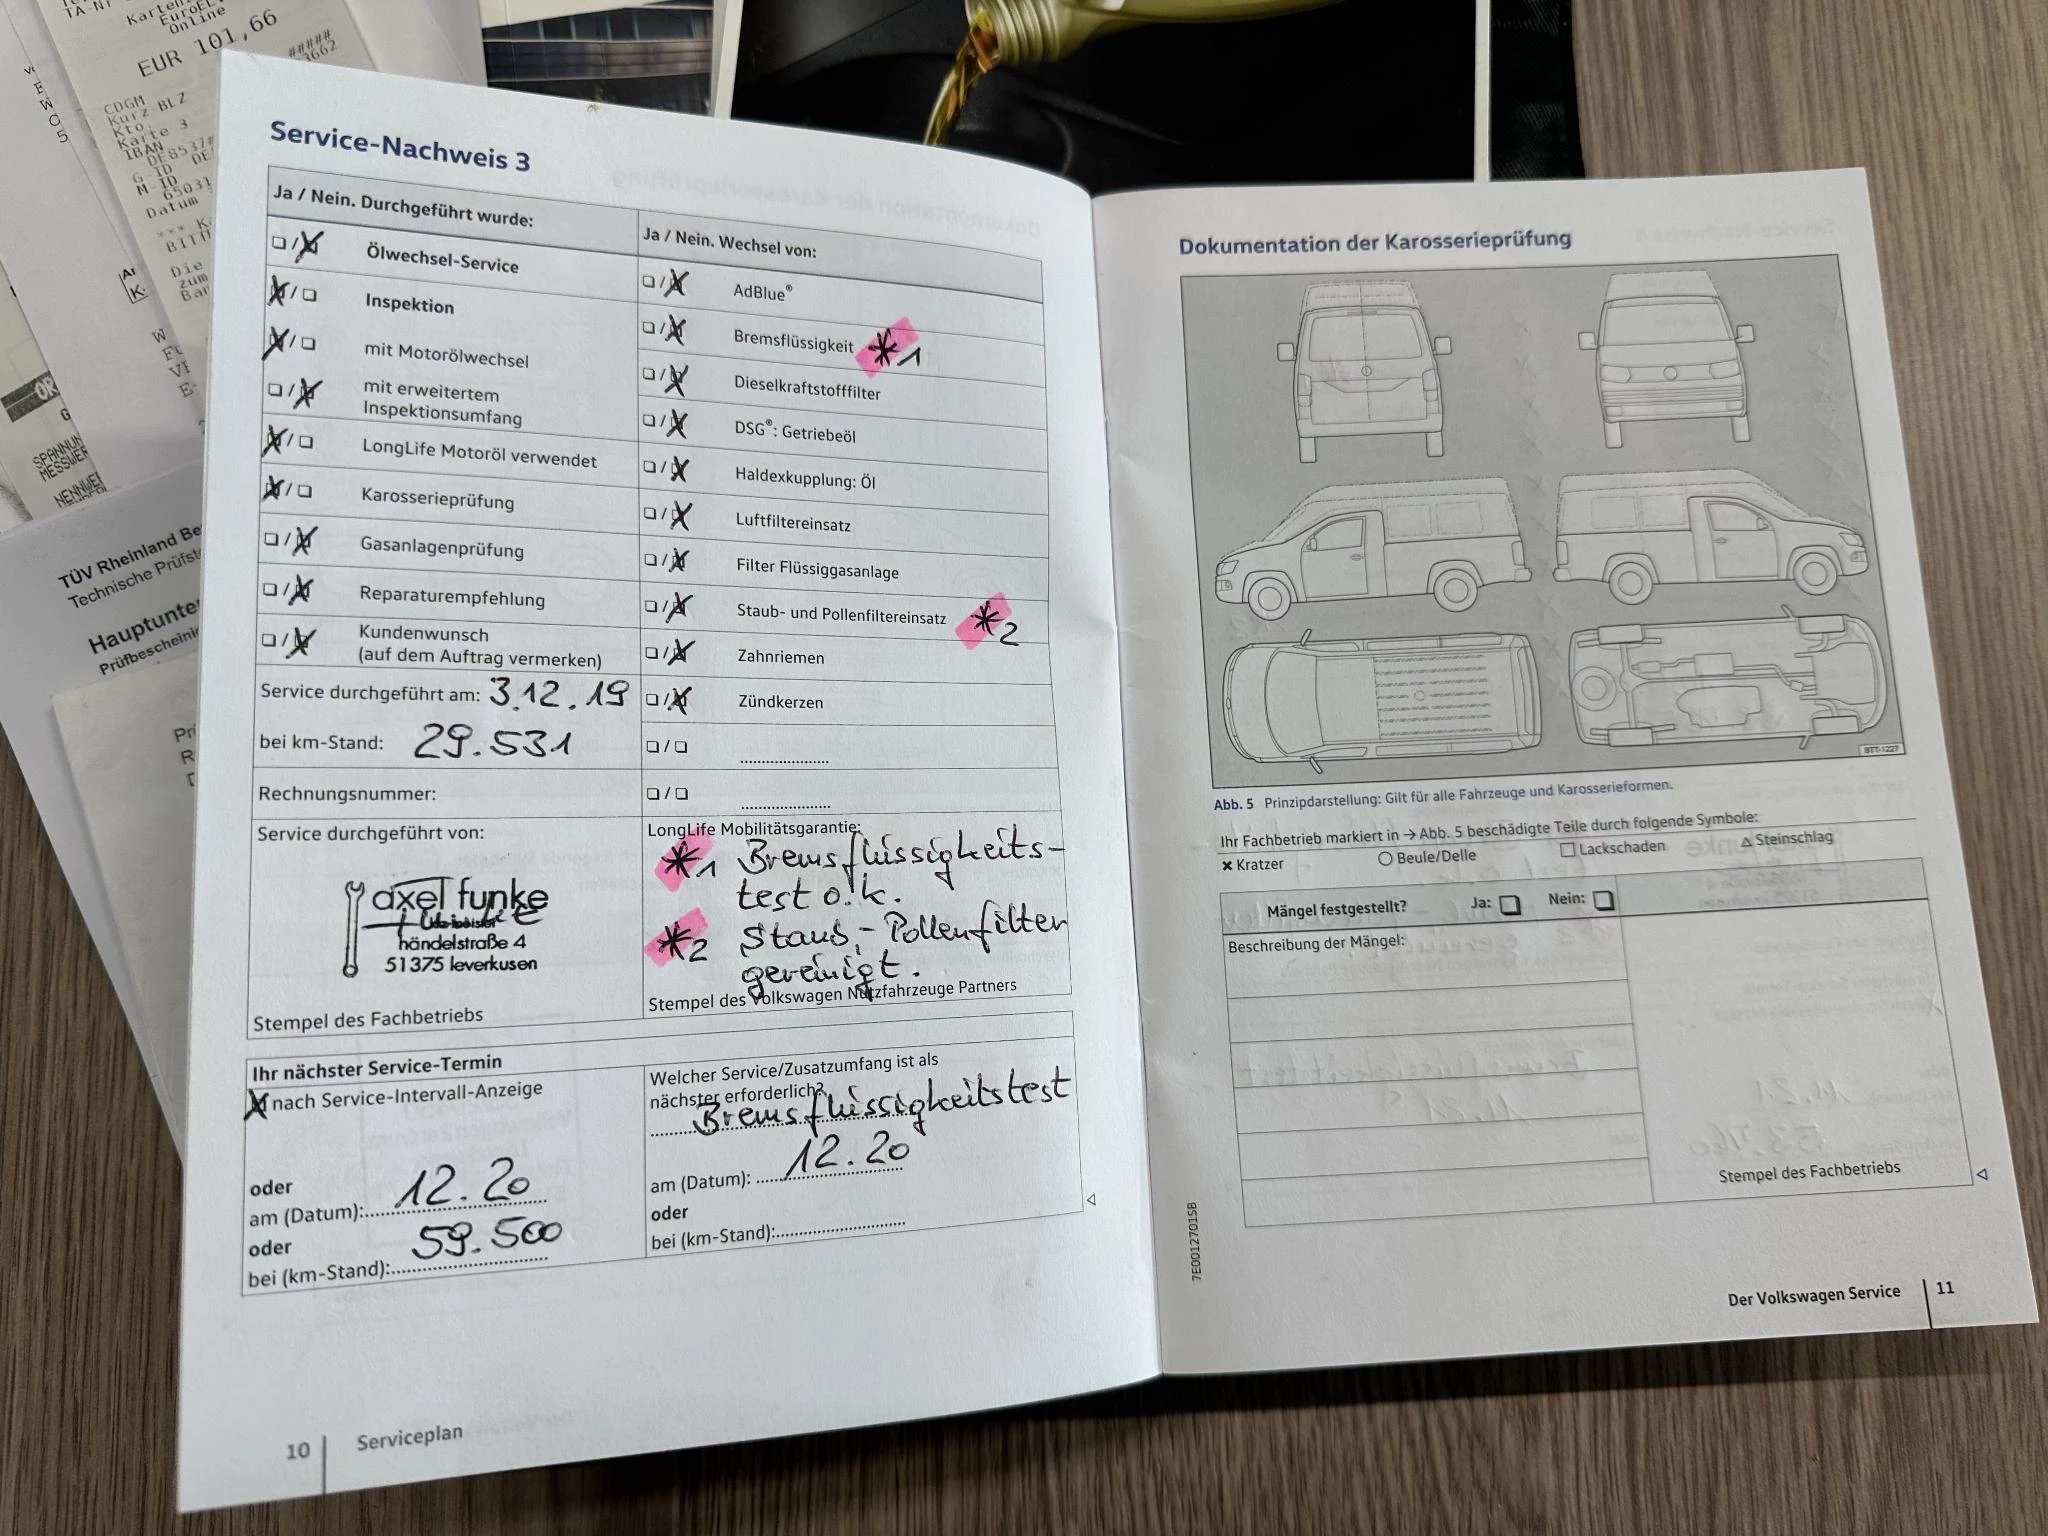 EUR 101,66
Online
CDGM
Kurz BLZ
Kto.
Karte 3
IBAN
G-ID
M-ID
Datum
TÜV Rheinland
Service-Nachweis 3
Ja / Nein. Durchgeführt wurde:
Ölwechsel-Service
Inspektion
mit Motorölwechsel
mit erweitertem
Inspektionsumfang
LongLife Motoröl verwendet
Karosserieprüfung
Gasanlagenprüfung
Reparaturempfehlung
Kundenwunsch
(auf dem Auftrag vermerken)
Service durchgeführt am: 3.12.19
bei km-Stand: 29.531
Rechnungsnummer:
Service durchgeführt von:
axel funke
händelstraße 4
51375 leverkusen
Stempel des Fachbetriebs
Ja / Nein. Wechsel von:
AdBlue®
Bremsflüssigkeit *1
Dieselkraftstofffilter
DSG®: Getriebeöl
Haldexkupplung: Öl
Luftfiltereinsatz
Filter Flüssiggasanlage
Staub- und Pollenfiltereinsatz *2
Zahnriemen
Zündkerzen
LongLife Mobilitätsgarantie:
*1 Bremsflüssigkeits-
test o.k.
*2 Staub,- Pollenfilter
gereinigt.
Stempel des Volkswagen Nutzfahrzeuge Partners
Ihr nächster Service-Termin
nach Service-Intervall-Anzeige
oder
am (Datum): 12.20
oder
bei (km-Stand): 59.500
Welcher Service/Zusatzumfang ist als
nächster erforderlich?
Bremsflüssigkeitstest
am (Datum): 12.20
oder
bei (km-Stand):
10 Serviceplan
Dokumentation der Karosserieprüfung
BTT-1227
Abb. 5 Prinzipdarstellung: Gilt für alle Fahrzeuge und Karosserieformen.
Ihr Fachbetrieb markiert in → Abb. 5 beschädigte Teile durch folgende Symbole:
× Kratzer ○ Beule/Delle □ Lackschaden △ Steinschlag
Mängel festgestellt? Ja: Nein:
Beschreibung der Mängel:
Stempel des Fachbetriebs
7E0012701SB
Der Volkswagen Service 11